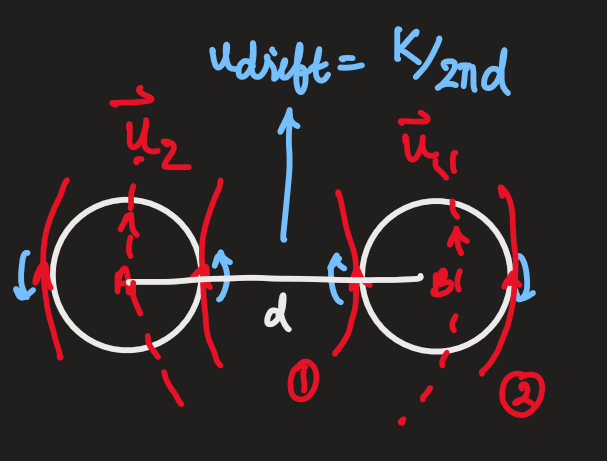 udrift = K/2πd
u⃗₂ u⃗₁
A B
d
① ②